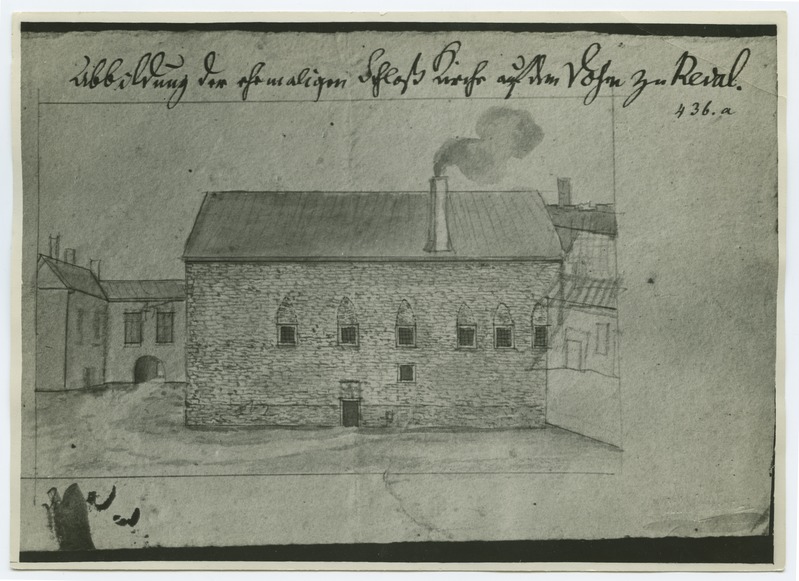 Abbildung der ehemaligen Schloß Kirche auf dem Dohm zu Reval.
436.a